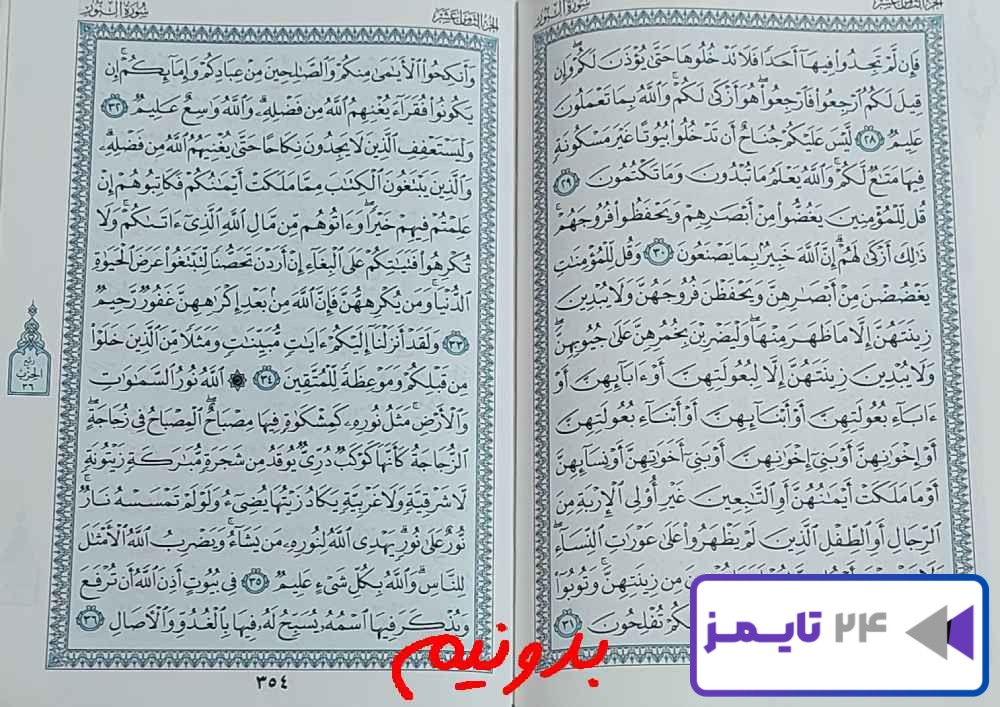 سورة النور
الجزء الثامن عشر
فَإِن لَّمْ تَجِدُوا۟ فِيهَآ أَحَدًا فَلَا تَدْخُلُوهَا حَتَّىٰ يُؤْذَنَ لَكُمْ ۖ وَإِن
قِيلَ لَكُمُ ٱرْجِعُوا۟ فَٱرْجِعُوا۟ ۖ هُوَ أَزْكَىٰ لَكُمْ ۚ وَٱللَّهُ بِمَا تَعْمَلُونَ
عَلِيمٌ ٢٨ لَّيْسَ عَلَيْكُمْ جُنَاحٌ أَن تَدْخُلُوا۟ بُيُوتًا غَيْرَ مَسْكُونَةٍ
فِيهَا مَتَـٰعٌ لَّكُمْ ۚ وَٱللَّهُ يَعْلَمُ مَا تُبْدُونَ وَمَا تَكْتُمُونَ ٢٩
قُل لِّلْمُؤْمِنِينَ يَغُضُّوا۟ مِنْ أَبْصَـٰرِهِمْ وَيَحْفَظُوا۟ فُرُوجَهُمْ ۚ
ذَٰلِكَ أَزْكَىٰ لَهُمْ ۗ إِنَّ ٱللَّهَ خَبِيرٌۢ بِمَا يَصْنَعُونَ ٣٠ وَقُل لِّلْمُؤْمِنَـٰتِ
يَغْضُضْنَ مِنْ أَبْصَـٰرِهِنَّ وَيَحْفَظْنَ فُرُوجَهُنَّ وَلَا يُبْدِينَ
زِينَتَهُنَّ إِلَّا مَا ظَهَرَ مِنْهَا ۖ وَلْيَضْرِبْنَ بِخُمُرِهِنَّ عَلَىٰ جُيُوبِهِنَّ ۖ
وَلَا يُبْدِينَ زِينَتَهُنَّ إِلَّا لِبُعُولَتِهِنَّ أَوْ ءَابَآئِهِنَّ أَوْ
ءَابَآءِ بُعُولَتِهِنَّ أَوْ أَبْنَآئِهِنَّ أَوْ أَبْنَآءِ بُعُولَتِهِنَّ
أَوْ إِخْوَٰنِهِنَّ أَوْ بَنِىٓ إِخْوَٰنِهِنَّ أَوْ بَنِىٓ أَخَوَٰتِهِنَّ أَوْ نِسَآئِهِنَّ
أَوْ مَا مَلَكَتْ أَيْمَـٰنُهُنَّ أَوِ ٱلتَّـٰبِعِينَ غَيْرِ أُو۟لِى ٱلْإِرْبَةِ مِنَ
ٱلرِّجَالِ أَوِ ٱلطِّفْلِ ٱلَّذِينَ لَمْ يَظْهَرُوا۟ عَلَىٰ عَوْرَٰتِ ٱلنِّسَآءِ ۖ
مِن زِينَتِهِنَّ ۚ وَتُوبُوٓا۟
تُفْلِحُونَ ٣١
سورة النور
الجزء الثامن عشر
وَأَنكِحُوا۟ ٱلْأَيَـٰمَىٰ مِنكُمْ وَٱلصَّـٰلِحِينَ مِنْ عِبَادِكُمْ وَإِمَآئِكُمْ ۚ إِن
يَكُونُوا۟ فُقَرَآءَ يُغْنِهِمُ ٱللَّهُ مِن فَضْلِهِۦ ۗ وَٱللَّهُ وَٰسِعٌ عَلِيمٌ ٣٢
وَلْيَسْتَعْفِفِ ٱلَّذِينَ لَا يَجِدُونَ نِكَاحًا حَتَّىٰ يُغْنِيَهُمُ ٱللَّهُ مِن فَضْلِهِۦ ۗ
وَٱلَّذِينَ يَبْتَغُونَ ٱلْكِتَـٰبَ مِمَّا مَلَكَتْ أَيْمَـٰنُكُمْ فَكَاتِبُوهُمْ إِنْ
عَلِمْتُمْ فِيهِمْ خَيْرًا ۖ وَءَاتُوهُم مِّن مَّالِ ٱللَّهِ ٱلَّذِىٓ ءَاتَىٰكُمْ ۚ وَلَا
تُكْرِهُوا۟ فَتَيَـٰتِكُمْ عَلَى ٱلْبِغَآءِ إِنْ أَرَدْنَ تَحَصُّنًا لِّتَبْتَغُوا۟ عَرَضَ ٱلْحَيَوٰةِ
ٱلدُّنْيَا ۚ وَمَن يُكْرِههُّنَّ فَإِنَّ ٱللَّهَ مِنۢ بَعْدِ إِكْرَٰهِهِنَّ غَفُورٌ رَّحِيمٌ
٣٣ وَلَقَدْ أَنزَلْنَآ إِلَيْكُمْ ءَايَـٰتٍ مُّبَيِّنَـٰتٍ وَمَثَلًا مِّنَ ٱلَّذِينَ خَلَوْا۟
مِن قَبْلِكُمْ وَمَوْعِظَةً لِّلْمُتَّقِينَ ٣٤ ۞ ٱللَّهُ نُورُ ٱلسَّمَـٰوَٰتِ
وَٱلْأَرْضِ ۚ مَثَلُ نُورِهِۦ كَمِشْكَوٰةٍ فِيهَا مِصْبَاحٌ ۖ ٱلْمِصْبَاحُ فِى زُجَاجَةٍ ۖ
ٱلزُّجَاجَةُ كَأَنَّهَا كَوْكَبٌ دُرِّىٌّ يُوقَدُ مِن شَجَرَةٍ مُّبَـٰرَكَةٍ زَيْتُونَةٍ
لَّا شَرْقِيَّةٍ وَلَا غَرْبِيَّةٍ يَكَادُ زَيْتُهَا يُضِىٓءُ وَلَوْ لَمْ تَمْسَسْهُ نَارٌ ۚ
نُّورٌ عَلَىٰ نُورٍ ۗ يَهْدِى ٱللَّهُ لِنُورِهِۦ مَن يَشَآءُ ۚ وَيَضْرِبُ ٱللَّهُ ٱلْأَمْثَـٰلَ
لِلنَّاسِ ۗ وَٱللَّهُ بِكُلِّ شَىْءٍ عَلِيمٌ ٣٥ فِى بُيُوتٍ أَذِنَ ٱللَّهُ أَن تُرْفَعَ
وَيُذْكَرَ فِيهَا ٱسْمُهُۥ يُسَبِّحُ لَهُۥ فِيهَا بِٱلْغُدُوِّ وَٱلْـَٔاصَالِ ٣٦
ربع
الحزب
٣٦
٣٥٤
بدونیم
۲۴ تایمز